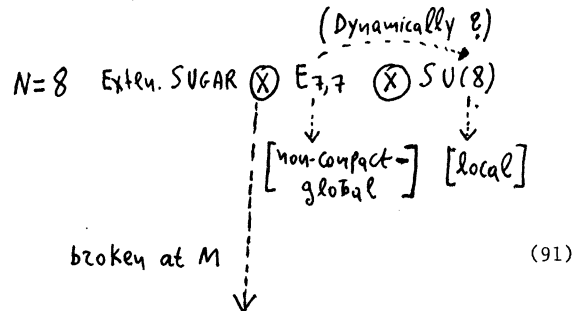 (Dynamically ?)
N=8 Exten. SUGAR ⊗ E₇,₇ ⊗ SU(8)
[non-compact- global] [local]
broken at M
(91)